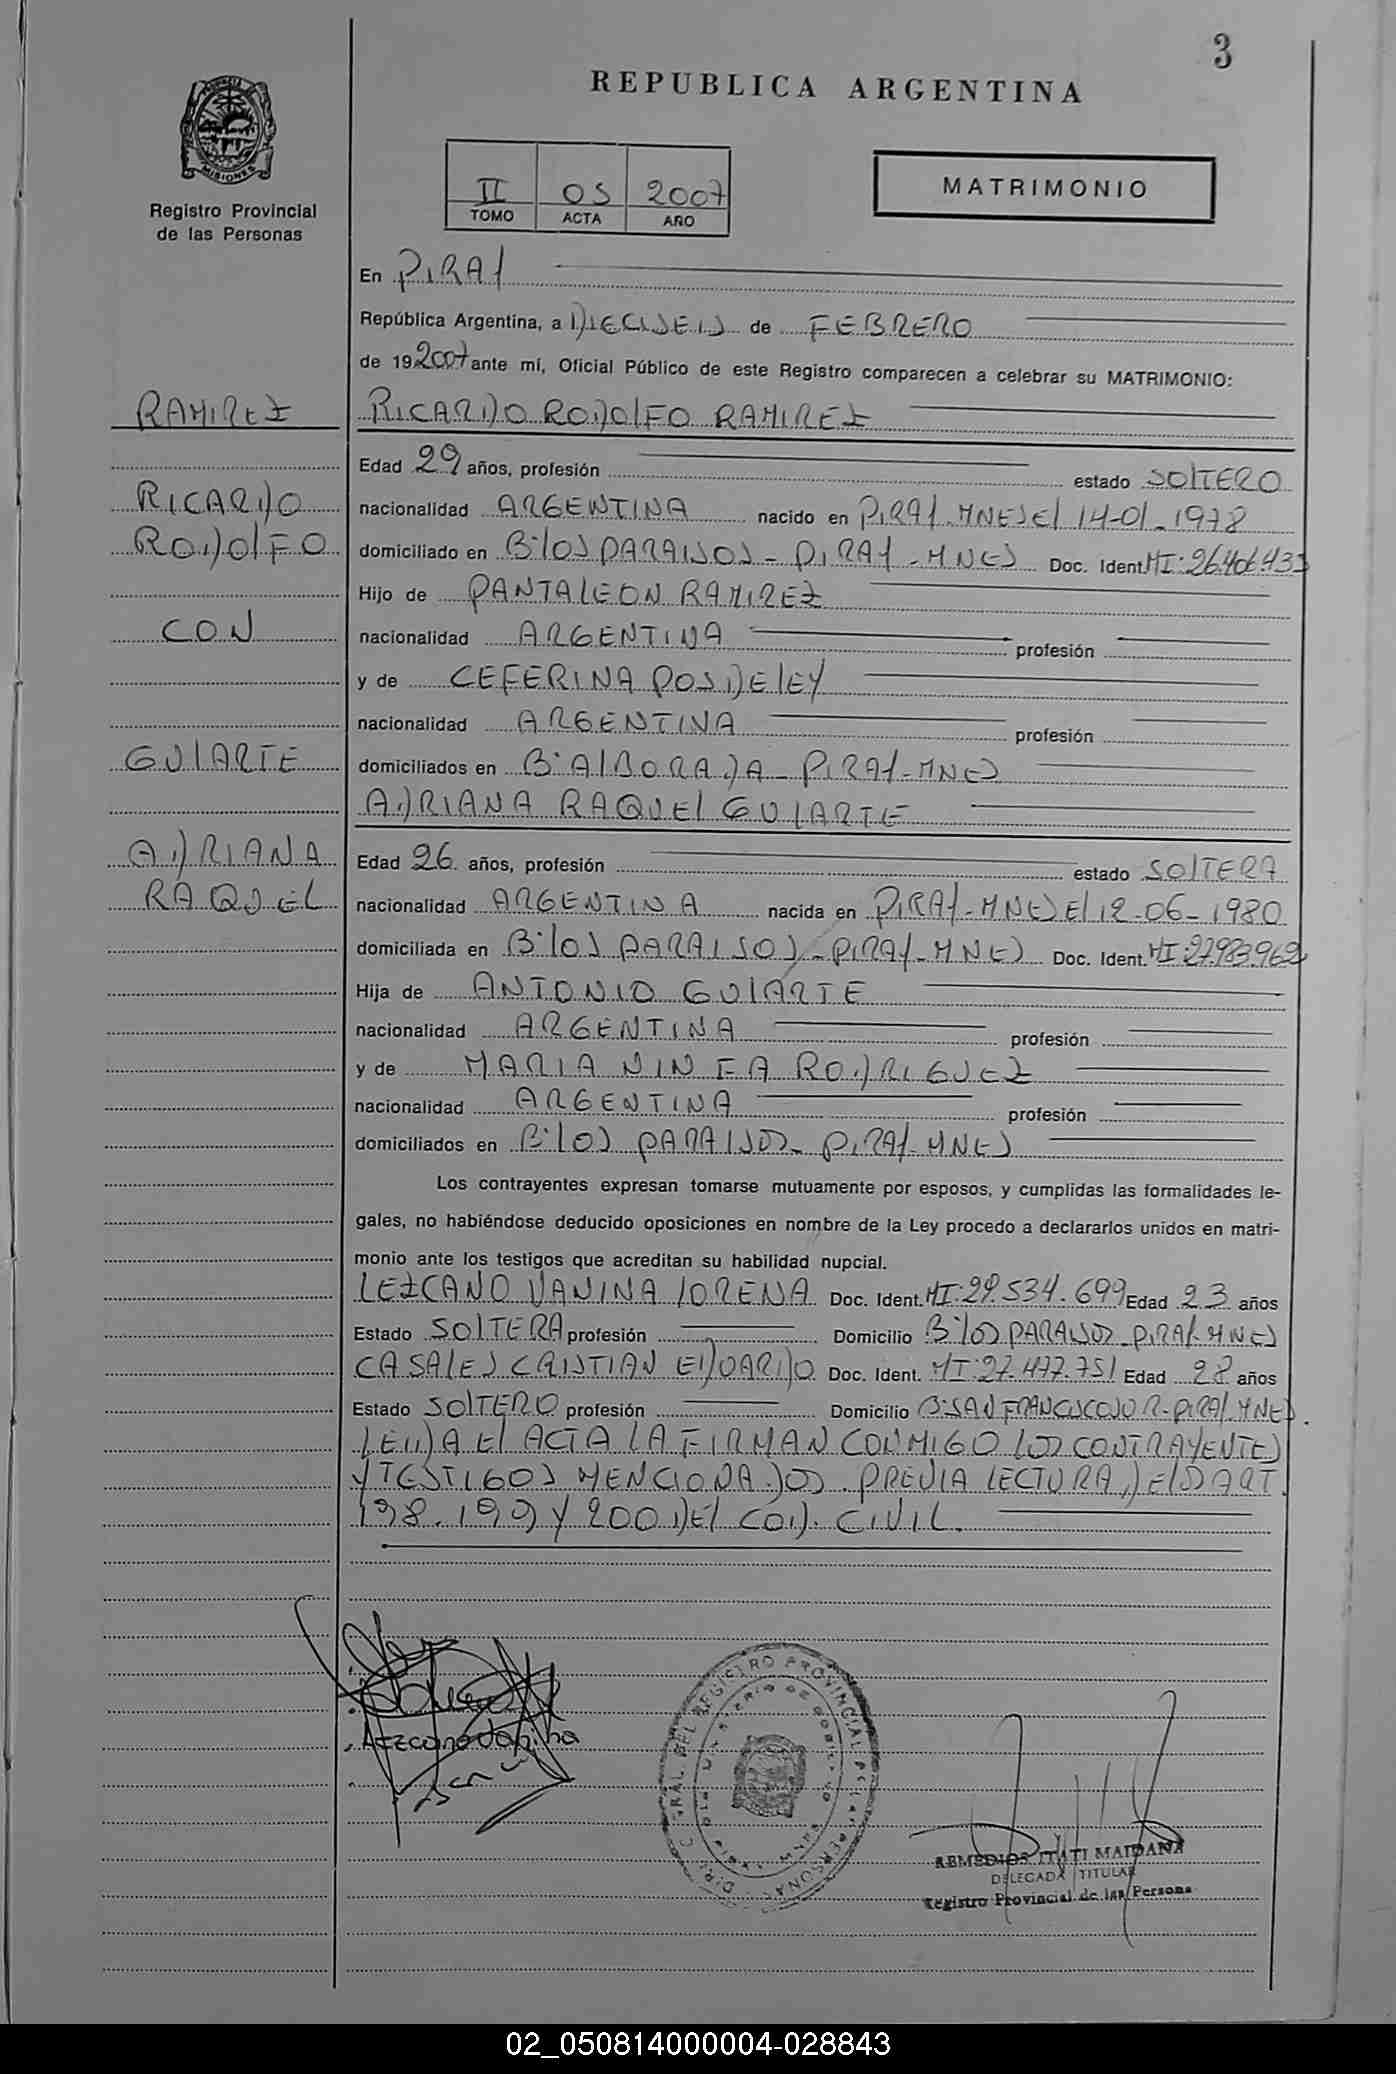 3
REPUBLICA ARGENTINA
MISIONES
Registro Provincial
de las Personas
II 05 2007
TOMO ACTA AÑO
MATRIMONIO
En PIRAY
República Argentina, a DIECISEIS de FEBRERO
de 192007 ante mí, Oficial Público de este Registro comparecen a celebrar su MATRIMONIO:
RAMIREZ
RICARDO RODOLFO RAMIREZ
Edad 29 años, profesión estado SOLTERO
RICARDO
nacionalidad ARGENTINA nacido en PIRAY-MNES EL 14-01-1978
RODOLFO
domiciliado en B: LOS PARAISOS - PIRAY - MNES Doc. Ident. MI: 26.406.433
Hijo de PANTALEON RAMIREZ
CON
nacionalidad ARGENTINA profesión
y de CEFERINA POSDELEY
nacionalidad ARGENTINA profesión
GULARTE
domiciliados en B: ALBORADA - PIRAY-MNES
ADRIANA RAQUEL GULARTE
ADRIANA
Edad 26 años, profesión estado SOLTERA
RAQUEL
nacionalidad ARGENTINA nacida en PIRAY-MNES EL 12-06-1980
domiciliada en B: LOS PARAISOS - PIRAY-MNES Doc. Ident. MI: 27.983.962
Hija de ANTONIO GULARTE
nacionalidad ARGENTINA profesión
y de MARIA NINFA RODRIGUEZ
nacionalidad ARGENTINA profesión
domiciliados en B: LOS PARAISOS - PIRAY-MNES
Los contrayentes expresan tomarse mutuamente por esposos, y cumplidas las formalidades le-
gales, no habiéndose deducido oposiciones en nombre de la Ley procedo a declararlos unidos en matri-
monio ante los testigos que acreditan su habilidad nupcial.
LEZCANO VANINA LORENA Doc. Ident. MI: 29.534.699 Edad 23 años
Estado SOLTERA profesión Domicilio B: LOS PARAISOS - PIRAY-MNES
CASALES CRISTIAN EDUARDO Doc. Ident. MI: 27.477.751 Edad 28 años
Estado SOLTERO profesión Domicilio B: SAN FRANCISCO SUR-PIRAY-MNES.
LEIDA EL ACTA LA FIRMAN CONMIGO LOS CONTRAYENTES
Y TESTIGOS MENCIONADOS. PREVIA LECTURA DE LOS ART.
198. 199 Y 200 DEL COD. CIVIL.
REMEDIOS ITATI MAIDANA
DELEGADA TITULAR
Registro Provincial de las Persona
02_050814000004-028843